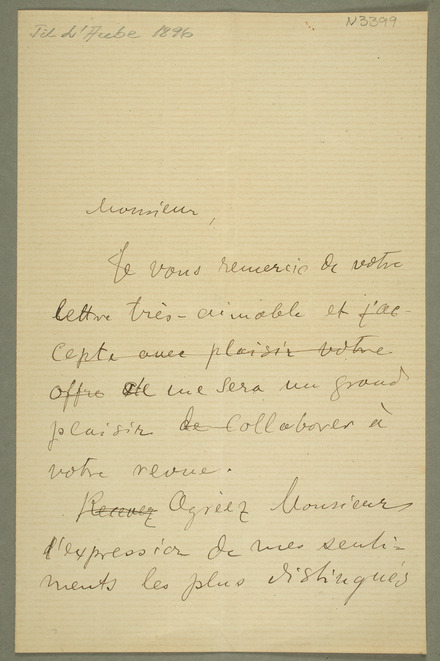 Tit d'Aube 1896
N3399
Monsieur,
Je vous remercie de votre
lettre très-aimable et j'ac-
cepte avec plaisir votre
offre il me sera un grand
plaisir de collaborer à
votre revue.
Recevez Agréez Monsieur
l'expression de mes senti-
ments les plus distingués